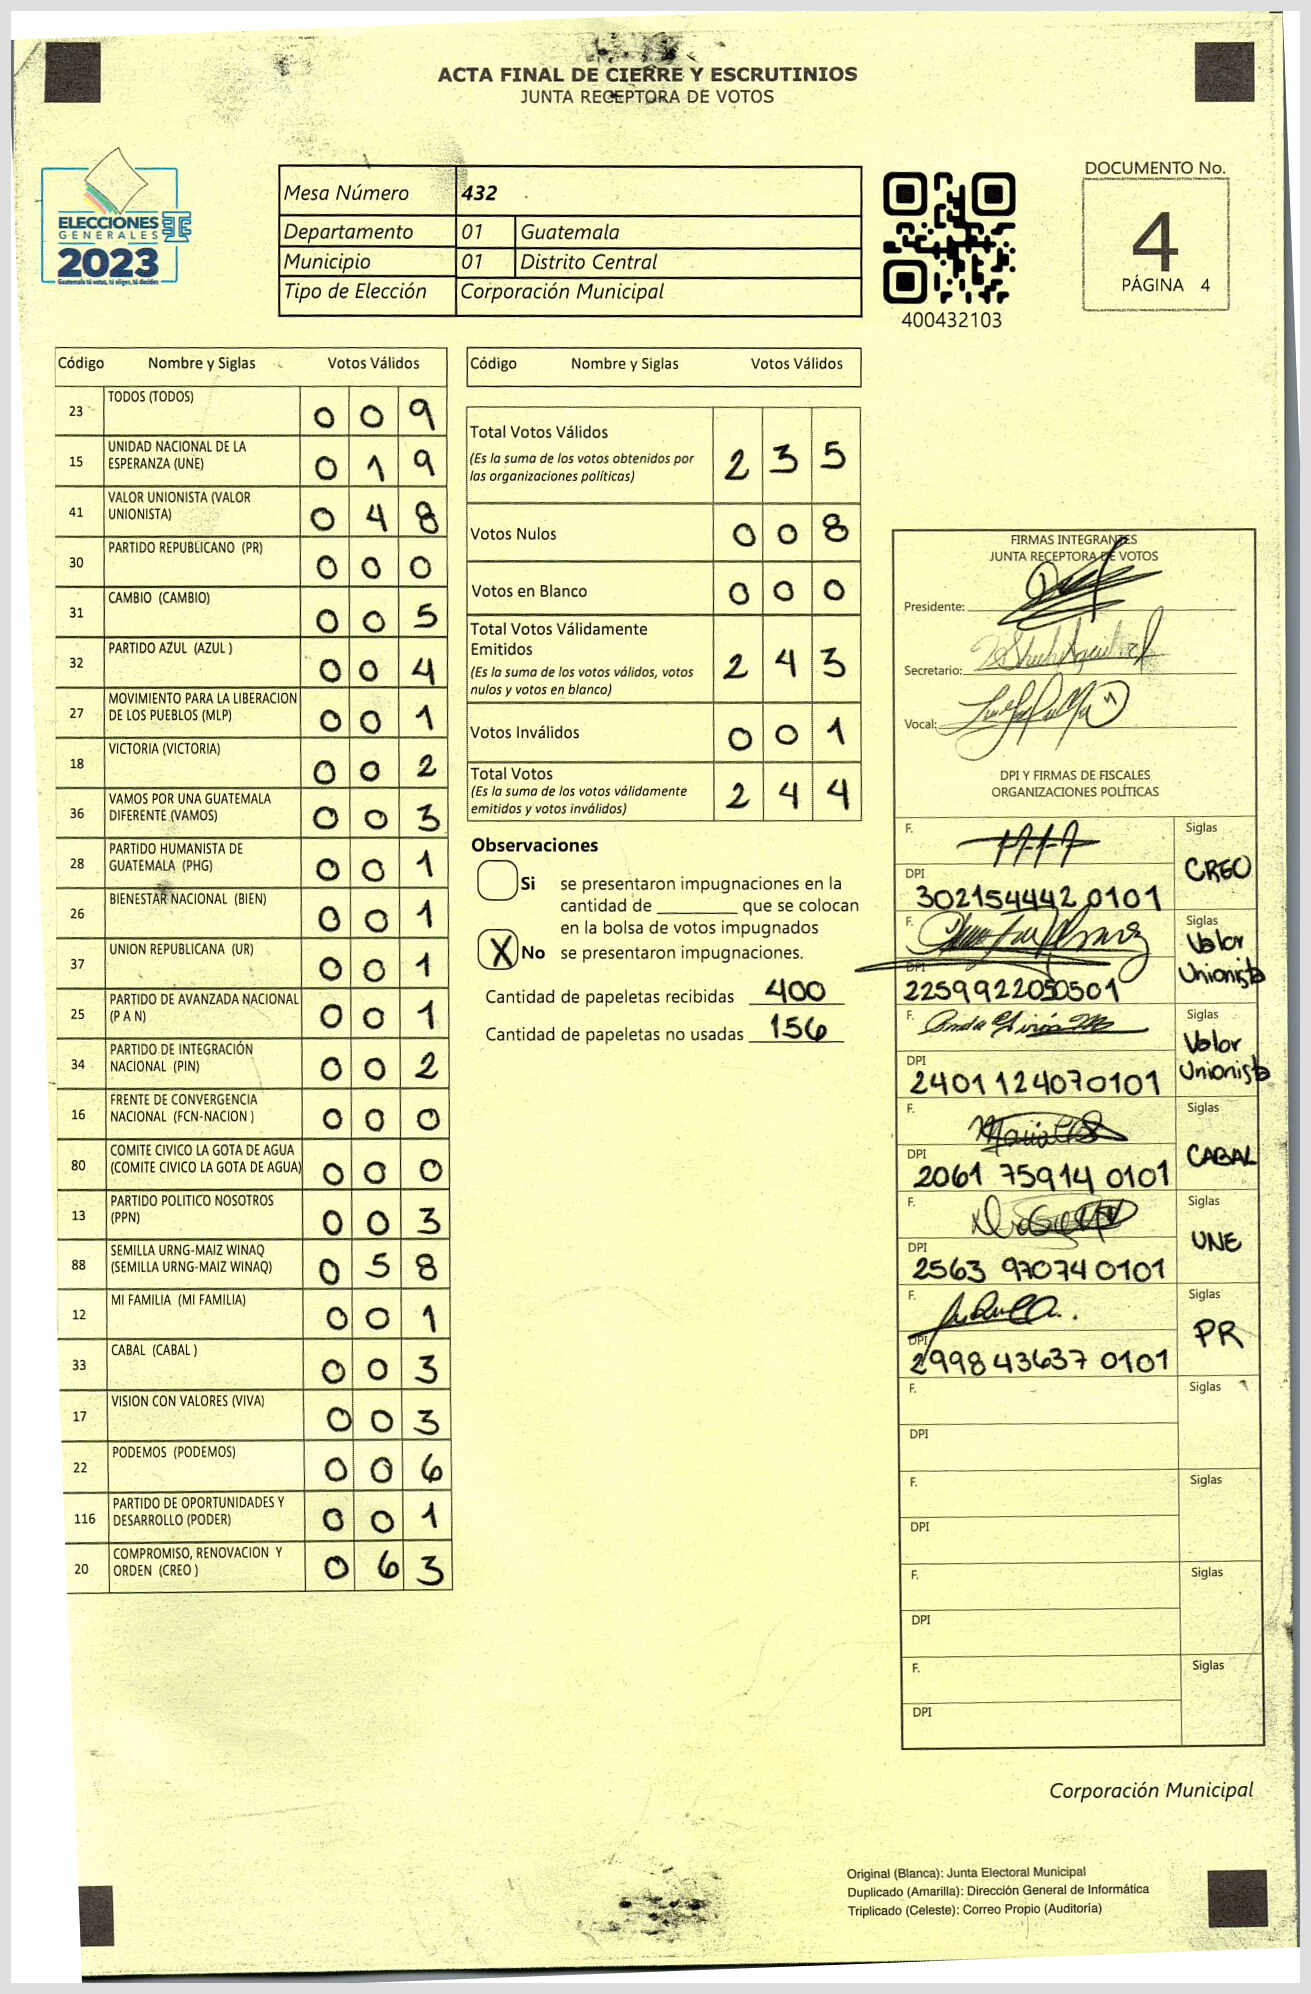 ACTA FINAL DE CIERRE Y ESCRUTINIOS
JUNTA RECEPTORA DE VOTOS
ELECCIONES
GENERALES
2023
Guatemala tú votas, tú eliges, tú decides
Mesa Número 432
Departamento 01 Guatemala
Municipio 01 Distrito Central
Tipo de Elección Corporación Municipal
400432103
DOCUMENTO No.
4
PÁGINA 4
Código Nombre y Siglas Votos Válidos
23 TODOS (TODOS) 0 0 9
15 UNIDAD NACIONAL DE LA
ESPERANZA (UNE) 0 1 9
41 VALOR UNIONISTA (VALOR
UNIONISTA) 0 4 8
30 PARTIDO REPUBLICANO (PR) 0 0 0
31 CAMBIO (CAMBIO) 0 0 5
32 PARTIDO AZUL (AZUL ) 0 0 4
27 MOVIMIENTO PARA LA LIBERACION
DE LOS PUEBLOS (MLP) 0 0 1
18 VICTORIA (VICTORIA) 0 0 2
36 VAMOS POR UNA GUATEMALA
DIFERENTE (VAMOS) 0 0 3
28 PARTIDO HUMANISTA DE
GUATEMALA (PHG) 0 0 1
26 BIENESTAR NACIONAL (BIEN) 0 0 1
37 UNION REPUBLICANA (UR) 0 0 1
25 PARTIDO DE AVANZADA NACIONAL
(P A N) 0 0 1
34 PARTIDO DE INTEGRACIÓN
NACIONAL (PIN) 0 0 2
16 FRENTE DE CONVERGENCIA
NACIONAL (FCN-NACION ) 0 0 0
80 COMITE CIVICO LA GOTA DE AGUA
(COMITE CIVICO LA GOTA DE AGUA) 0 0 0
13 PARTIDO POLITICO NOSOTROS
(PPN) 0 0 3
88 SEMILLA URNG-MAIZ WINAQ
(SEMILLA URNG-MAIZ WINAQ) 0 5 8
12 MI FAMILIA (MI FAMILIA) 0 0 1
33 CABAL (CABAL ) 0 0 3
17 VISION CON VALORES (VIVA) 0 0 3
22 PODEMOS (PODEMOS) 0 0 6
116 PARTIDO DE OPORTUNIDADES Y
DESARROLLO (PODER) 0 0 1
20 COMPROMISO, RENOVACION Y
ORDEN (CREO ) 0 6 3
Código Nombre y Siglas Votos Válidos
Total Votos Válidos
(Es la suma de los votos obtenidos por
las organizaciones políticas) 2 3 5
Votos Nulos 0 0 8
Votos en Blanco 0 0 0
Total Votos Válidamente
Emitidos
(Es la suma de los votos válidos, votos
nulos y votos en blanco) 2 4 3
Votos Inválidos 0 0 1
Total Votos
(Es la suma de los votos válidamente
emitidos y votos inválidos) 2 4 4
Observaciones
Si se presentaron impugnaciones en la
cantidad de ________ que se colocan
en la bolsa de votos impugnados
X No se presentaron impugnaciones.
Cantidad de papeletas recibidas 400
Cantidad de papeletas no usadas 156
FIRMAS INTEGRANTES
JUNTA RECEPTORA DE VOTOS
Presidente:
Secretario:
Vocal:
DPI Y FIRMAS DE FISCALES
ORGANIZACIONES POLÍTICAS
F. Siglas
CREO
DPI
302154442 0101
F. Siglas
Valor
Unionista
DPI
2259922050501
F. Siglas
Valor
Unionista
DPI
2401 124070101
F. Siglas
CABAL
DPI
2061 75914 0101
F. Siglas
UNE
DPI
2563 97074 0101
F. Siglas
PR
DPI
2998 43637 0101
F. Siglas
DPI
F. Siglas
DPI
F. Siglas
DPI
F. Siglas
DPI
Corporación Municipal
Original (Blanca): Junta Electoral Municipal
Duplicado (Amarilla): Dirección General de Informática
Triplicado (Celeste): Correo Propio (Auditoría)